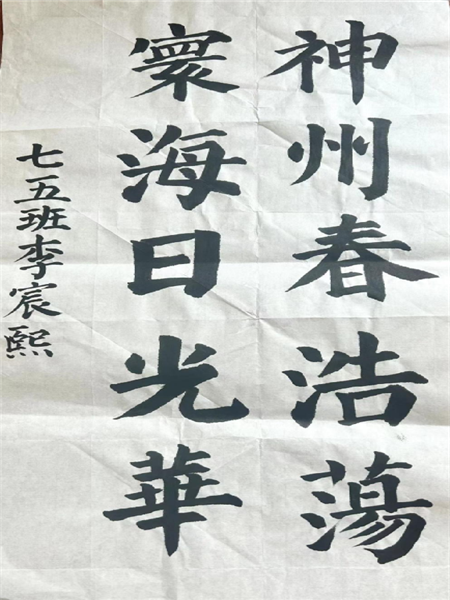 神州春浩蕩
寰海日光華
七五班李宸熙